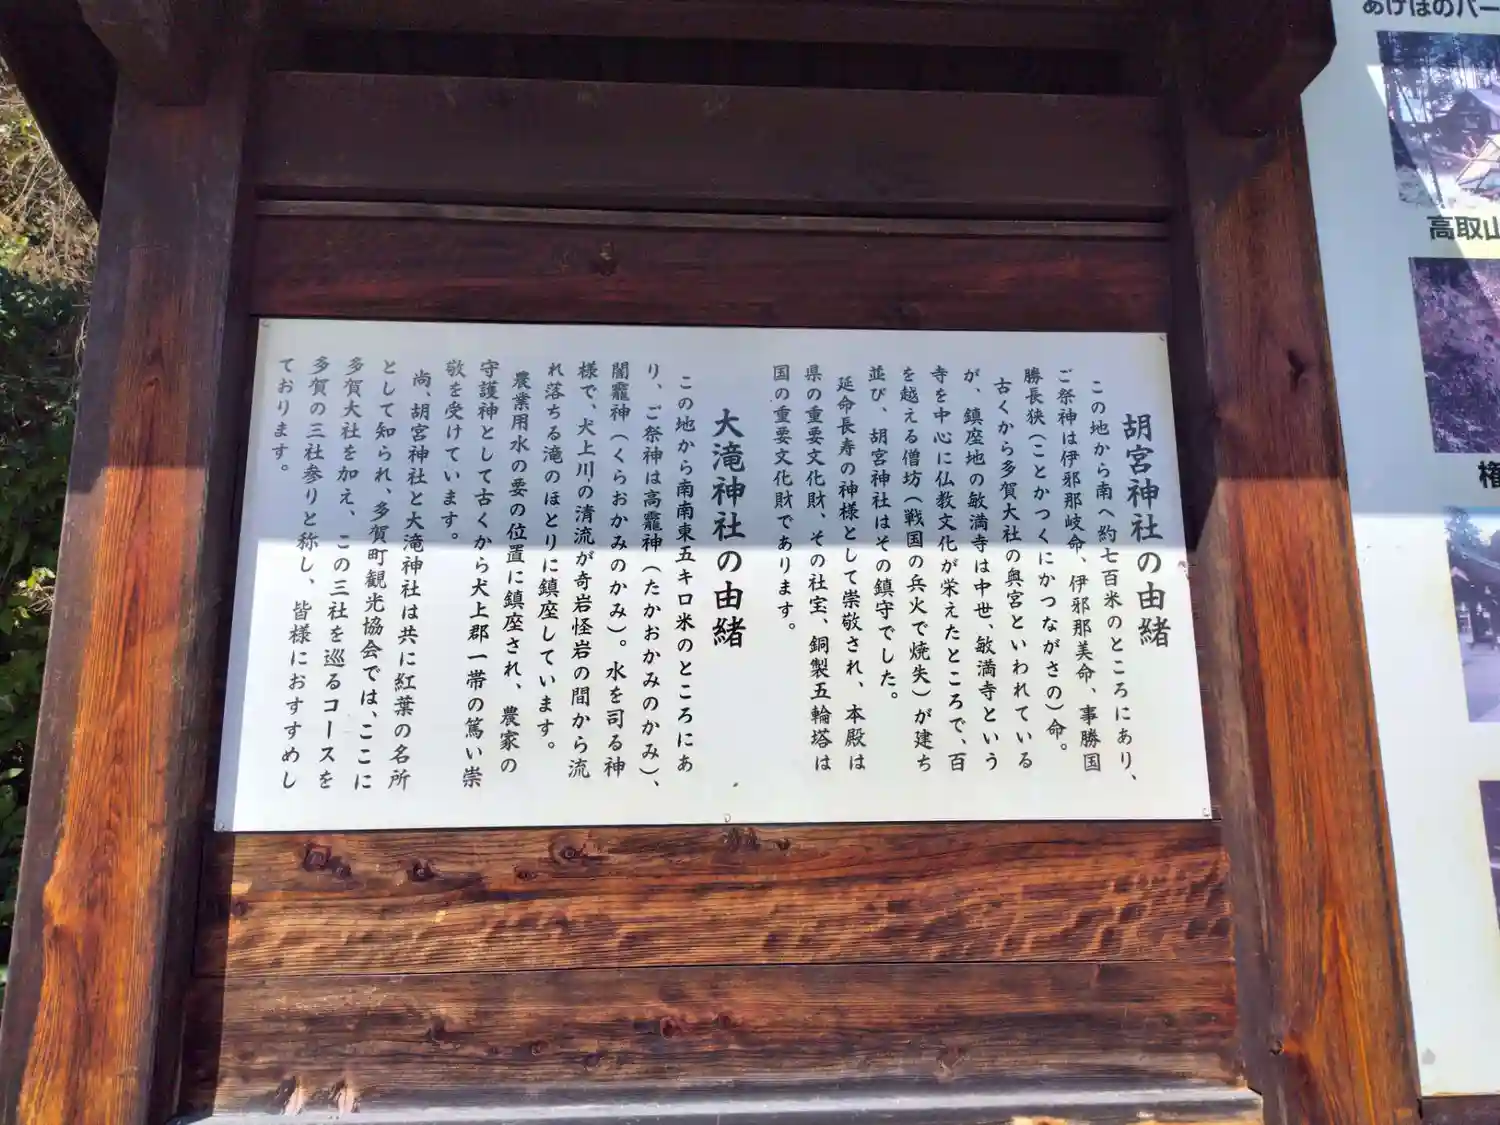 胡宮神社の由緒
この地から南へ約七百米のところにあり、
ご祭神は伊邪那岐命、伊邪那美命、事勝国
勝長狭（ことかつくにかつながさの）命。
古くから多賀大社の奥宮といわれている
が、鎮座地の敏満寺は中世、敏満寺という
寺を中心に仏教文化が栄えたところで、百
を越える僧坊（戦国の兵火で焼失）が建ち
並び、胡宮神社はその鎮守でした。
延命長寿の神様として崇敬され、本殿は
県の重要文化財、その社宝、銅製五輪塔は
国の重要文化財であります。
大滝神社の由緒
この地から南南東五キロ米のところにあ
り、ご祭神は高龗神（たかおかみのかみ）、
闇龗神（くらおかみのかみ）。水を司る神
様で、犬上川の清流が奇岩怪岩の間から流
れ落ちる滝のほとりに鎮座しています。
農業用水の要の位置に鎮座され、農家の
守護神として古くから犬上郡一帯の篤い崇
敬を受けています。
尚、胡宮神社と大滝神社は共に紅葉の名所
として知られ、多賀町観光協会では、ここに
多賀大社を加え、この三社を巡るコースを
多賀の三社参りと称し、皆様におすすめし
ております。
あけぼのパー
高取山